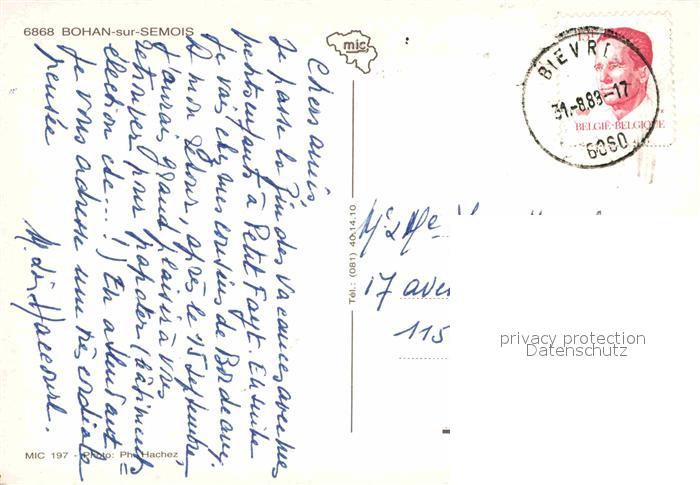 6868 BOHAN-sur-SEMOIS
mic
BIEVRE
31.-8.89-17
6860
BELGIË-BELGIQUE
Chers amis,
Je passe la fin des vacances avec mes
petits enfants à Petit Fayt. Ensuite
je vais chez mes cousins de Bordeaux.
A mon retour, après le 15 septembre,
j'aurais grand plaisir à vous
retrouver pour papoter (bâtiments
élection etc...!) En attendant
je vous adresse une très cordiale
pensée
Tél.: (081) 40.14.10
17 ave
115
privacy protection
Datenschutz
MIC 197 - Photo: Ph. Hachez